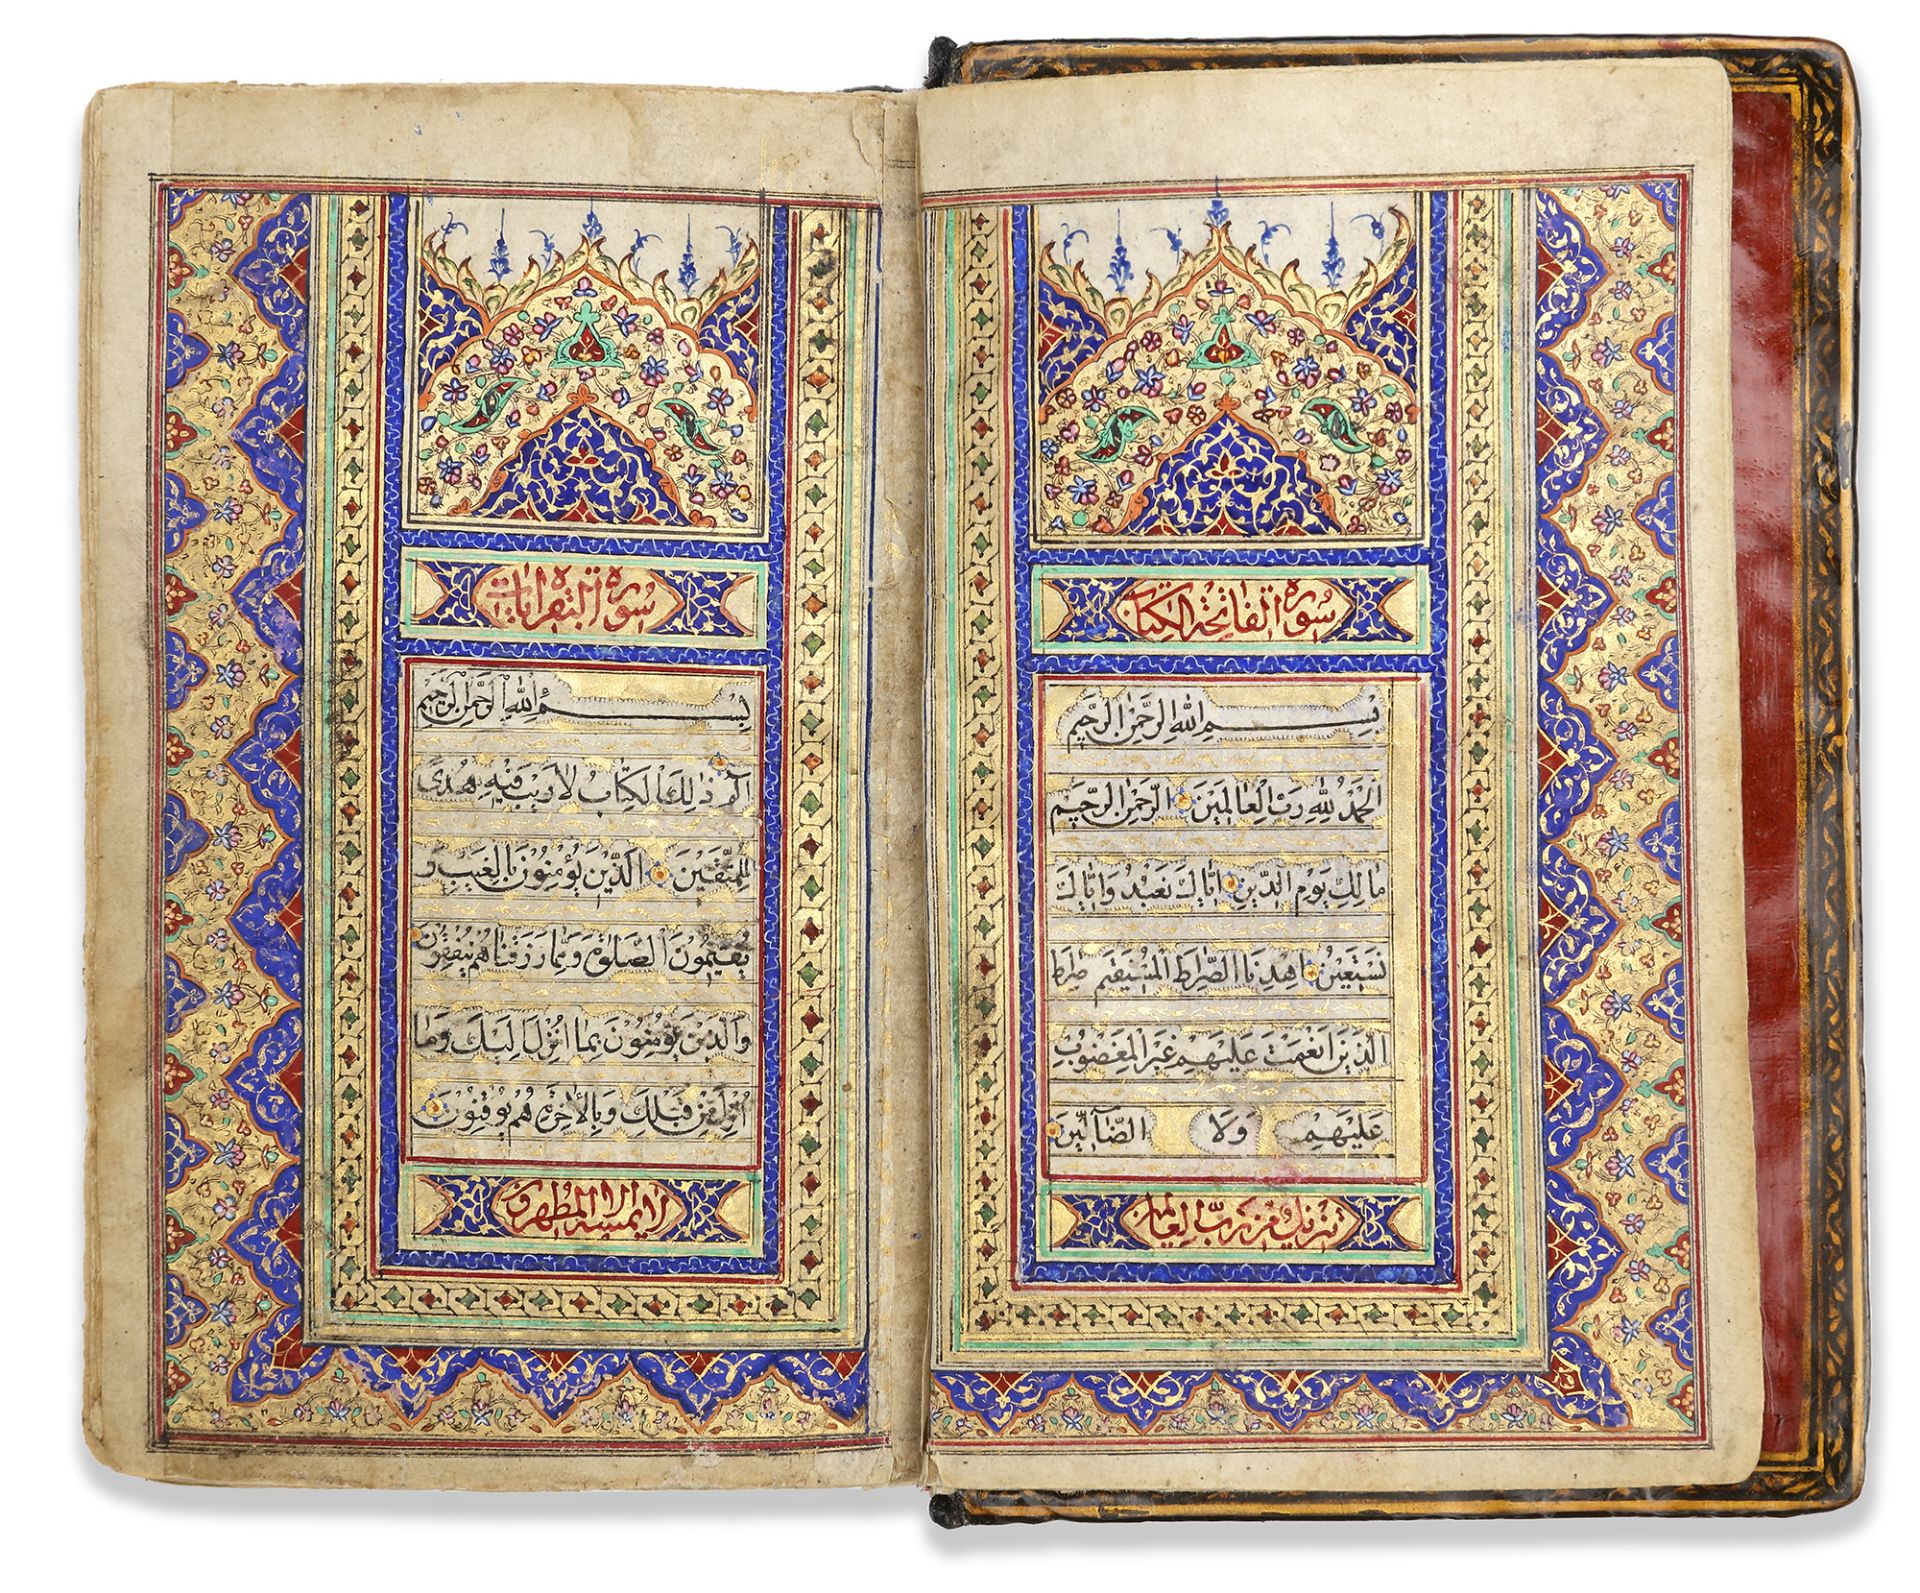 سورة الفاتحة الكتاب
بِسْمِ اللهِ الرَّحْمٰنِ الرَّحِيمِ
الْحَمْدُ لِلّٰهِ رَبِّ الْعَالَمِينَ الرَّحْمٰنِ الرَّحِيمِ
مَالِكِ يَوْمِ الدِّينِ اِيَّاكَ نَعْبُدُ وَاِيَّاكَ
نَسْتَعِينُ اهْدِنَا الصِّرَاطَ الْمُسْتَقِيمَ صِرَاطَ
الَّذِينَ اَنْعَمْتَ عَلَيْهِمْ غَيْرِ الْمَغْضُوبِ
عَلَيْهِمْ وَلَا الضَّآلِّينَ
تنزيل من رب العالمين
سورة البقرة
بِسْمِ اللهِ الرَّحْمٰنِ الرَّحِيمِ
الٓمٓ ذٰلِكَ الْكِتَابُ لَا رَيْبَ فِيهِ هُدًى
لِلْمُتَّقِينَ الَّذِينَ يُؤْمِنُونَ بِالْغَيْبِ وَ
يُقِيمُونَ الصَّلٰوةَ وَمِمَّا رَزَقْنَاهُمْ يُنْفِقُونَ
وَالَّذِينَ يُؤْمِنُونَ بِمَا اُنْزِلَ اِلَيْكَ وَمَا
اُنْزِلَ مِنْ قَبْلِكَ وَبِالْاٰخِرَةِ هُمْ يُوقِنُونَ
لا يمسه الا المطهرون